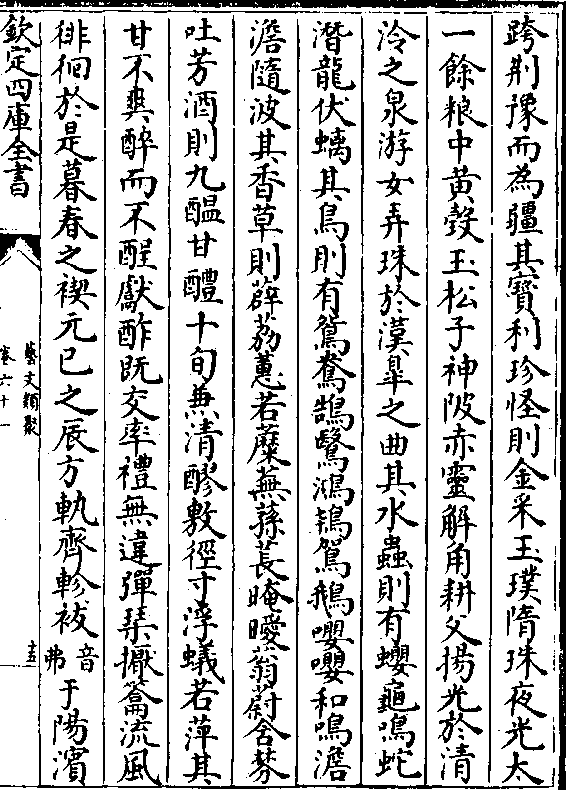 跨荆豫而為疆其寳利珍怪則金采玉璞隋珠夜光太
一餘粮中黄瑴玉松子神陂赤靈解角耕父揚光於清
泠之泉游女弄珠於漢臯之曲其水蟲則有蠳龜鳴蛇
潛龍伏螭其鳥則有鴛鴦鵠鷖鴻鴇駕鵝嚶嚶和鳴澹
澹隨波其香草則薜荔蕙若蘪蕪蓀萇晻曖蓊蔚含芬
吐芳酒則九醖甘醴十旬兼清醪敷徑寸浮蟻若萍其
甘不爽醉而不酲獻酢既交率禮無違彈琴擪籥流風
徘徊於是暮春之禊元巳之辰方軌齊軫祓音弗于陽濱
欽定四庫全書
藝文類聚
卷六十一
十五